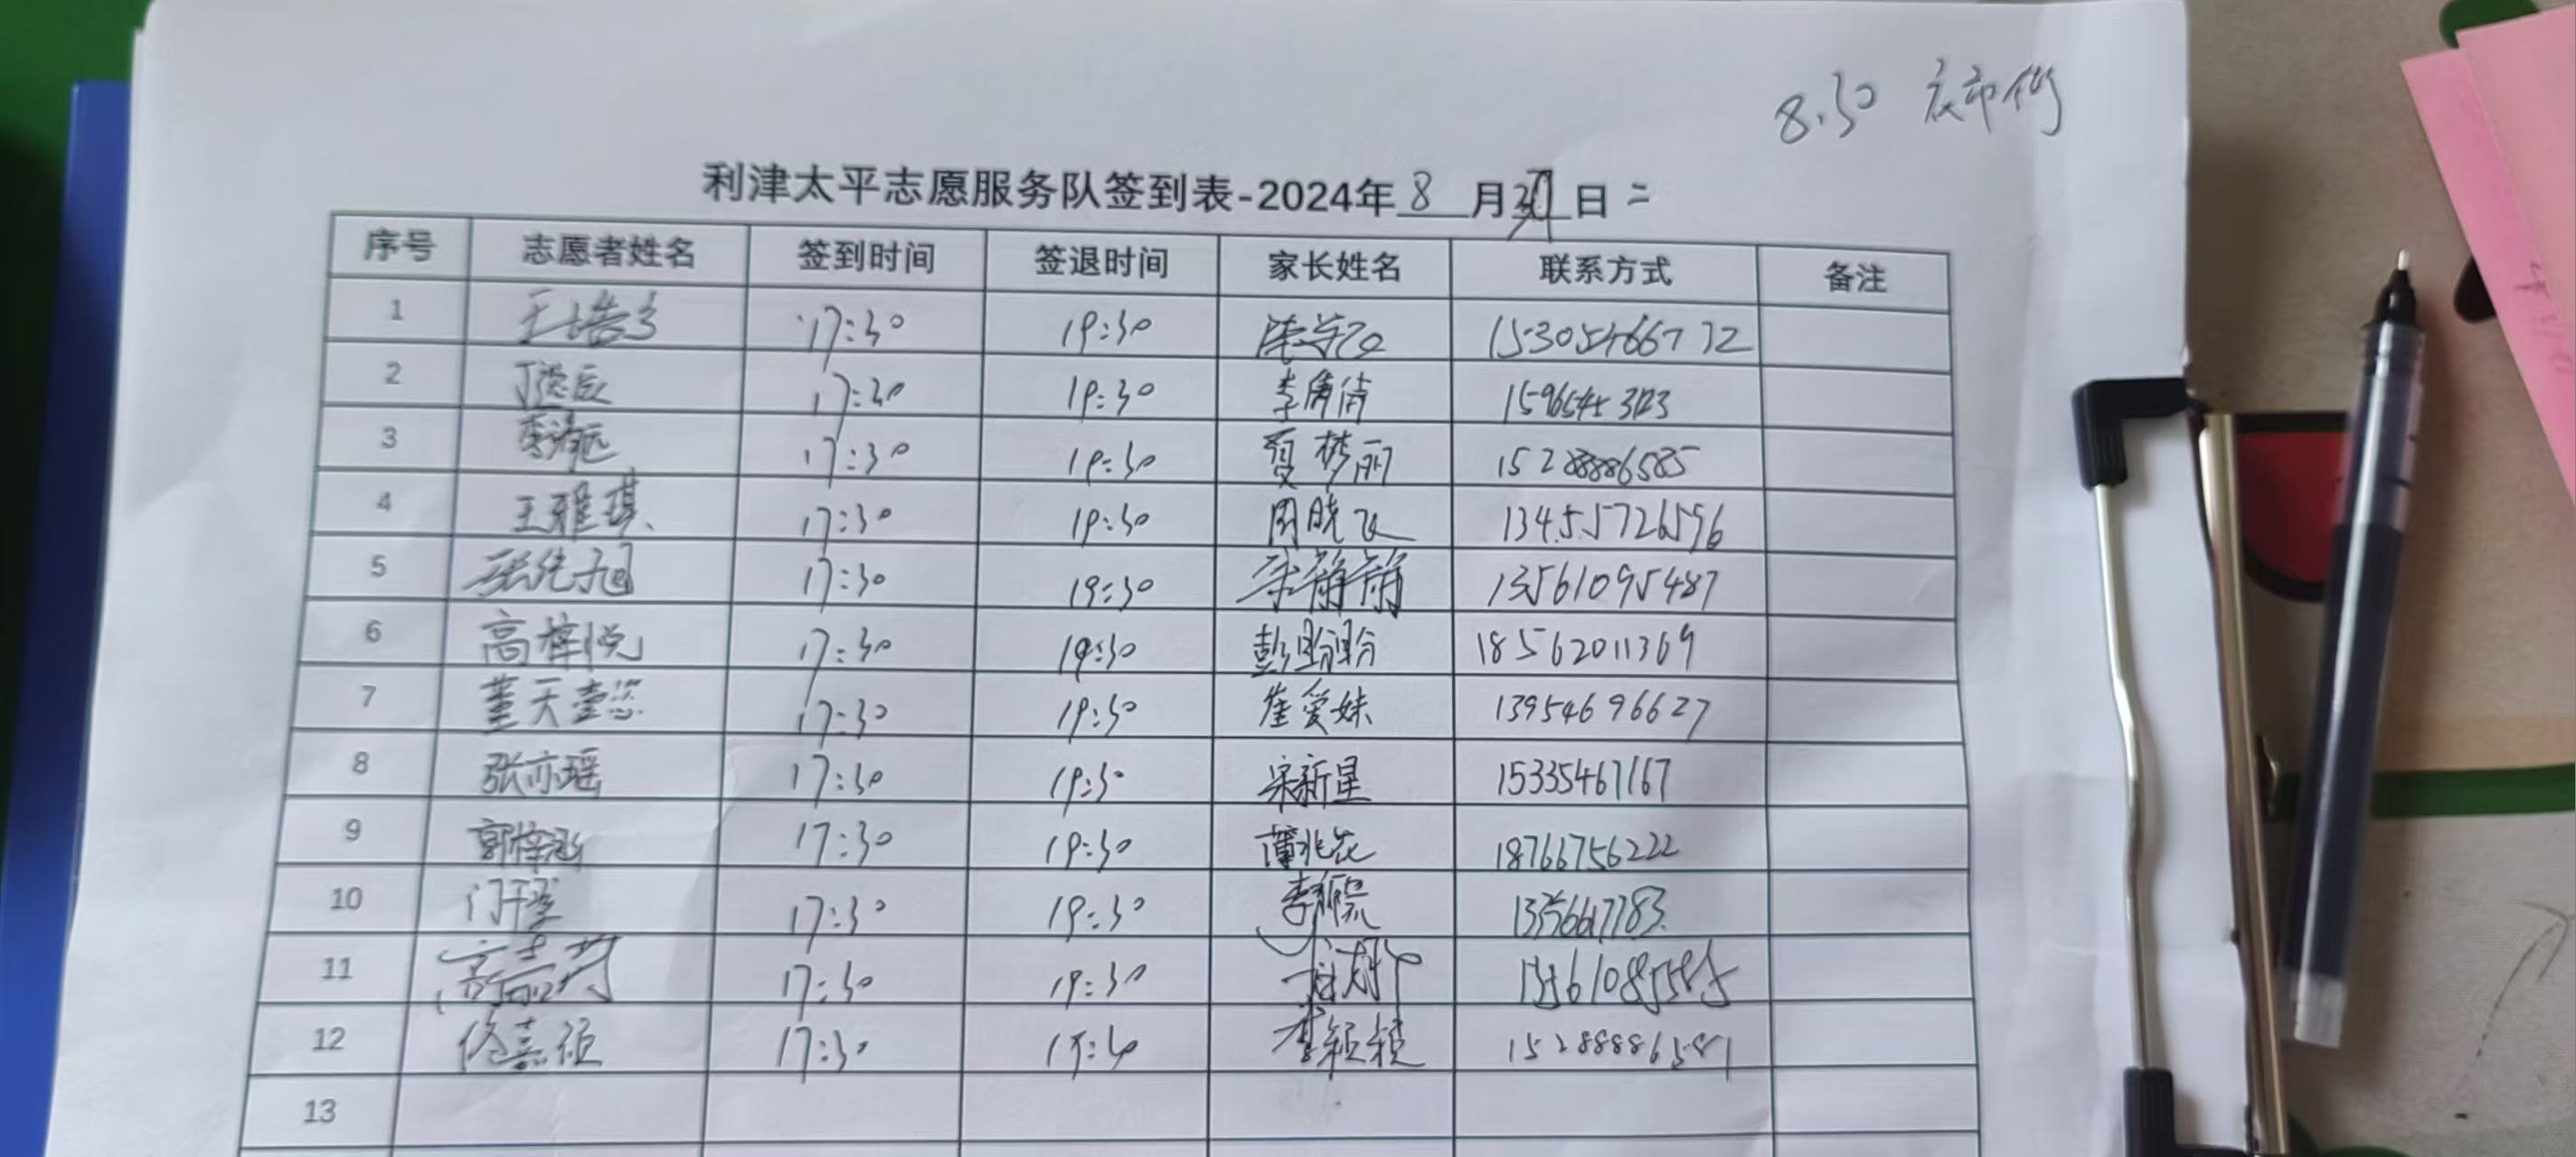 8.30 夜市街
利津太平志愿服务队签到表-2024年 8 月30日 二
序号 志愿者姓名 签到时间 签退时间 家长姓名 联系方式 备注
1 王皓 17:30 19:30 15305466772
2 丁 17:30 19:30 李倩倩
3 李 17:30 19:30 夏梦丽 15288886585
4 王雅琪 17:30 19:30 周晓飞 13455726596
5 张 旭 17:30 19:30 宋静静 13561095487
6 高梓悦 17:30 19:30 彭盼盼 18562011369
7 董天 17:30 19:30 崔爱妹 13954696627
8 张亦瑶 17:30 19:30 宋新星 15335467167
9 郭梓涵 17:30 19:30 薄兆花 18766756222
10 门 17:30 19:30 李
11 高嘉 17:30 19:30
12 佟嘉 17:30 19:30 李颖颖 15288886581
13